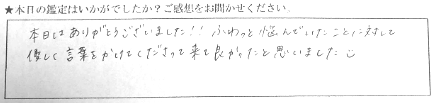 ★本日の鑑定はいかがでしたか？ご感想をお聞かせください。
本日はありがとうございました!! ふわっと悩んでいたことに対して
優しく言葉をかけてくださって来て良かったと思いました